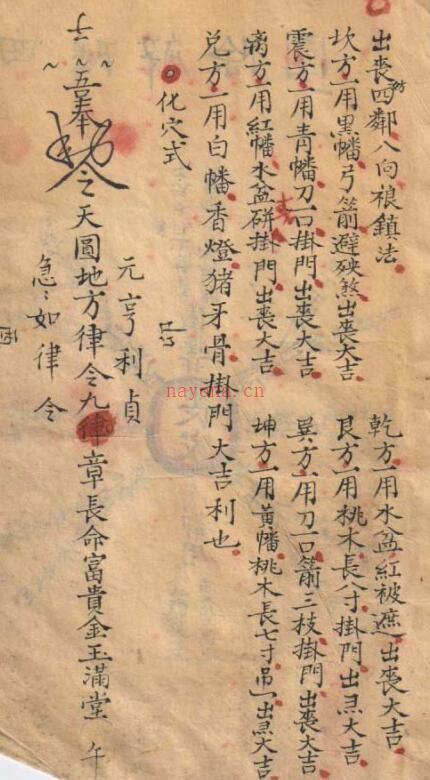 出喪四鄰八向禳鎮法
坎方一用黑幡弓箭避殃煞出喪大吉
艮方一用桃木長八寸掛門出丧大吉
乾方一用水盆紅被遮出喪大吉
震方一用青幡刀一口掛門出喪大吉
巽方一用刀一口箭三枝掛門出喪大吉
离方一用紅幡水盆硏掛門出喪大吉
坤方一用黃幡桃木長七寸吊出丧大吉
兑方一用白幡香燈猪牙骨掛門大吉利也
化穴式
元亨利貞
五奉
令天圓地方律令九章長命富貴金玉滿堂
急如律令
nayona.cn